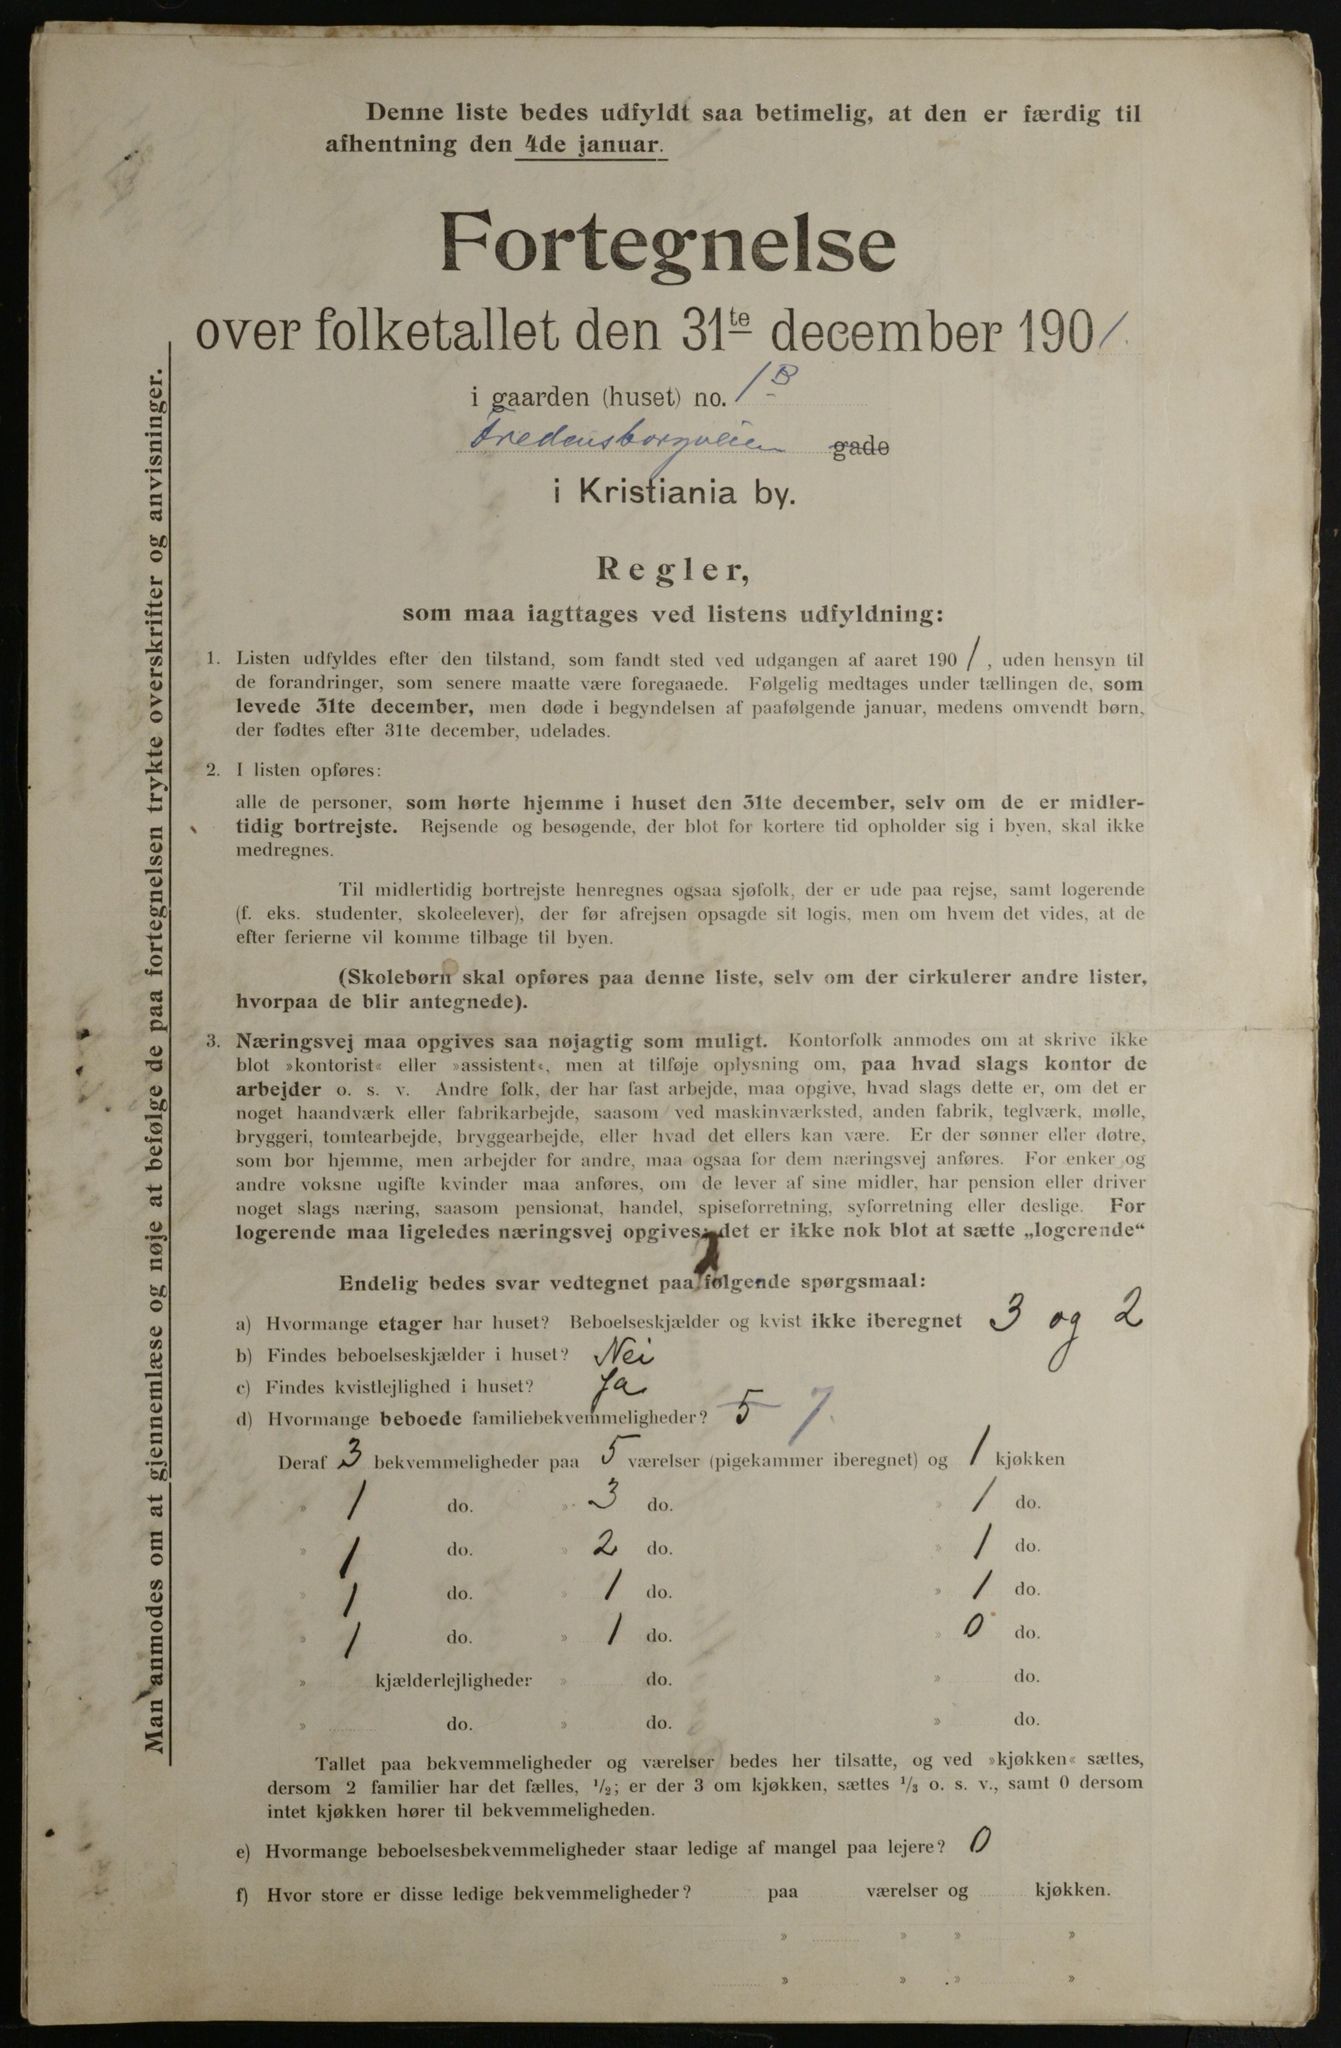 Denne liste bedes udfyldt saa betimelig, at den er færdig til
afhentning den 4de januar.
Fortegnelse
over folketallet den 31te december 1901.
i gaarden (huset) no. 1B
Fredensborgveien gade
i Kristiania by.
Regler,
som maa iagttages ved listens udfyldning:
1. Listen udfyldes efter den tilstand, som fandt sted ved udgangen af aaret 1901, uden hensyn til
de forandringer, som senere maatte være foregaaede. Følgelig medtages under tællingen de, som
levede 31te december, men døde i begyndelsen af paafølgende januar, medens omvendt børn,
der fødtes efter 31te december, udelades.
2. I listen opføres:
alle de personer, som hørte hjemme i huset den 31te december, selv om de er midler-
tidig bortrejste. Rejsende og besøgende, der blot for kortere tid opholder sig i byen, skal ikke
medregnes.
Til midlertidig bortrejste henregnes ogsaa sjøfolk, der er ude paa rejse, samt logerende
(f. eks. studenter, skoleelever), der før afrejsen opsagde sit logis, men om hvem det vides, at de
efter ferierne vil komme tilbage til byen.
(Skolebørn skal opføres paa denne liste, selv om der cirkulerer andre lister,
hvorpaa de blir antegnede).
3. Næringsvej maa opgives saa nøjagtig som muligt. Kontorfolk anmodes om at skrive ikke
blot »kontorist« eller »assistent«, men at tilføje oplysning om, paa hvad slags kontor de
arbejder o. s. v. Andre folk, der har fast arbejde, maa opgive, hvad slags dette er, om det er
noget haandværk eller fabrikarbejde, saasom ved maskinværksted, anden fabrik, teglværk, mølle,
bryggeri, tomtearbejde, bryggearbejde, eller hvad det ellers kan være. Er der sønner eller døtre,
som bor hjemme, men arbejder for andre, maa ogsaa for dem næringsvej anføres. For enker og
andre voksne ugifte kvinder maa anføres, om de lever af sine midler, har pension eller driver
noget slags næring, saasom pensionat, handel, spiseforretning, syforretning eller deslige. For
logerende maa ligeledes næringsvej opgives; det er ikke nok blot at sætte „logerende“
Endelig bedes svar vedtegnet paa følgende spørgsmaal:
a) Hvormange etager har huset? Beboelseskjælder og kvist ikke iberegnet 3 og 2
b) Findes beboelseskjælder i huset? Nei
c) Findes kvistlejlighed i huset? Ja
d) Hvormange beboede familiebekvemmeligheder? 5 7.
Deraf 3 bekvemmeligheder paa 5 værelser (pigekammer iberegnet) og 1 kjøkken
» 1 do. » 3 do. » 1 do.
» 1 do. » 2 do. » 1 do.
» 1 do. » 1 do. » 1 do.
» 1 do. » 1 do. » 0 do.
» kjælderlejligheder » do. » do.
» do. » do. » do.
Tallet paa bekvemmeligheder og værelser bedes her tilsatte, og ved »kjøkken« sættes,
dersom 2 familier har det fælles, 1/2; er der 3 om kjøkken, sættes 1/3 o. s. v., samt 0 dersom
intet kjøkken hører til bekvemmeligheden.
e) Hvormange beboelsesbekvemmeligheder staar ledige af mangel paa lejere? 0
f) Hvor store er disse ledige bekvemmeligheder? paa værelser og kjøkken.
» » » »
» » » »
Man anmodes om at gjennemlæse og nøje at befølge de paa fortegnelsen trykte overskrifter og anvisninger.